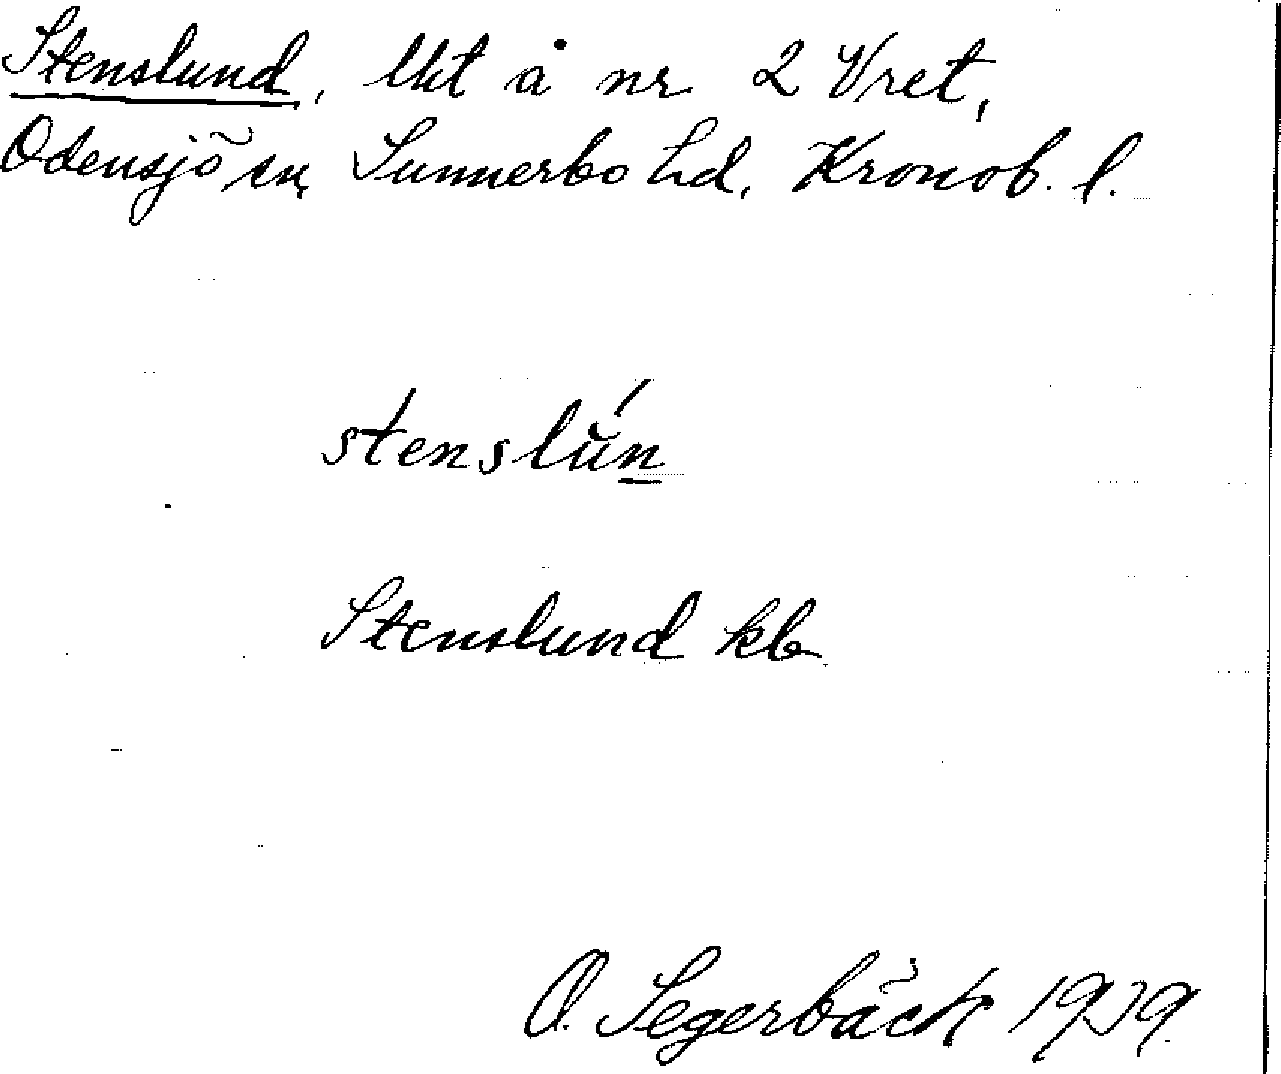 Stenslund, lht å nr 2 Vret,
Odensjö sn, Sunnerbo hd, Kronob. l.
stenslún
Stenslund kb
O. Segerbäck 1939